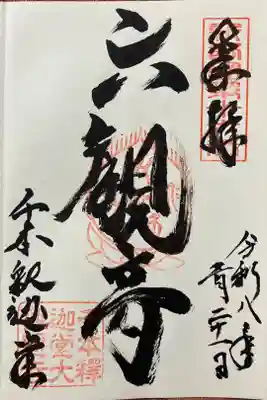 奉拝
六観音
令和八年
月二十一日
千本釈迦堂
千本釋
迦堂大